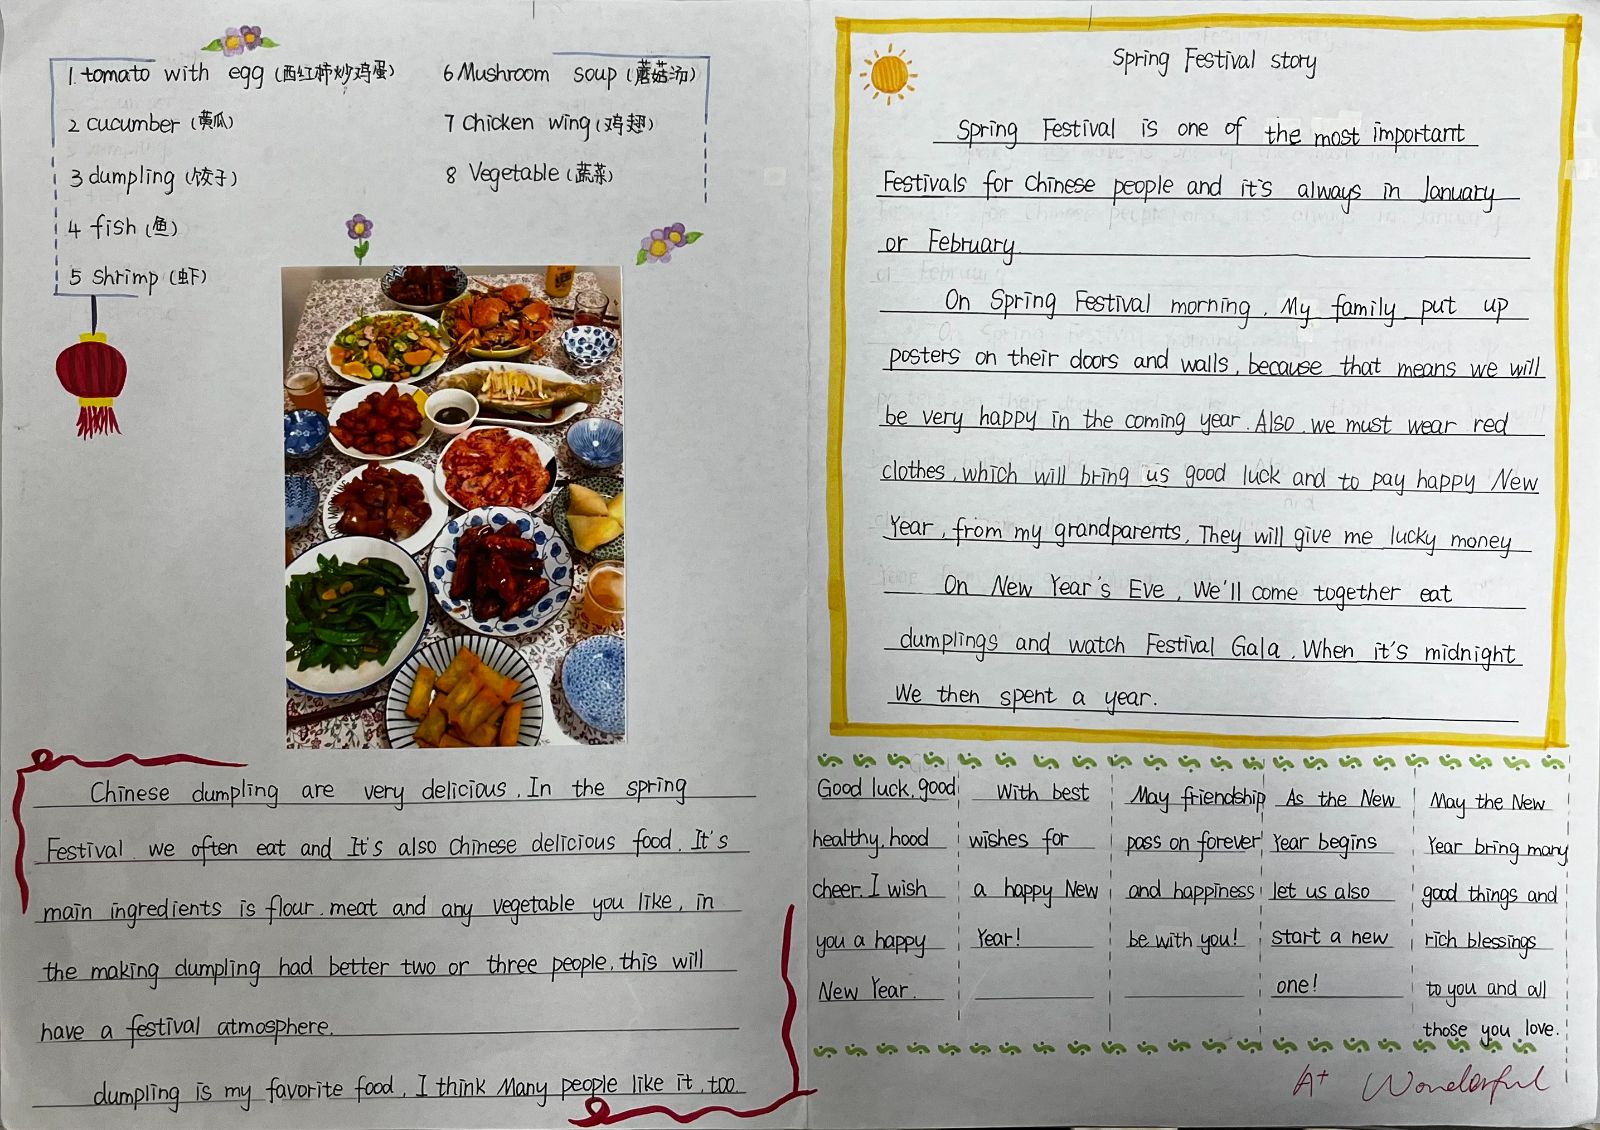 1. tomato with egg (西红柿炒鸡蛋)
2 cucumber (黄瓜)
3 dumpling (饺子)
4 fish (鱼)
5 shrimp (虾)
6 Mushroom soup (蘑菇汤)
7 chicken wing (鸡翅)
8 Vegetable (蔬菜)
Chinese dumpling are very delicious. In the spring
Festival. we often eat and It's also Chinese delicious food. It's
main ingredients is flour. meat and any vegetable you like, in
the making dumpling had better two or three people, this will
have a festival atmosphere.
dumpling is my favorite food, I think Many people like it, too.
Spring Festival story
Spring Festival is one of the most important
Festivals for Chinese people and it's always in January
or February.
On Spring Festival morning, My family put up
posters on their doors and walls, because that means we will
be very happy in the coming year. Also we must wear red
clothes, which will bring us good luck and to pay happy New
Year, from my grandparents, They will give me lucky money
On New Year's Eve, We'll come together eat
dumplings and watch Festival Gala. When it's midnight
We then spent a year.
Good luck, good
healthy, hood
cheer. I wish
you a happy
New Year.
With best
wishes for
a happy New
Year!
May friendship
pass on forever
and happiness
be with you!
As the New
Year begins
let us also
start a new
one!
May the New
Year bring many
good things and
rich blessings
to you and all
those you love.
A+ Wonderful